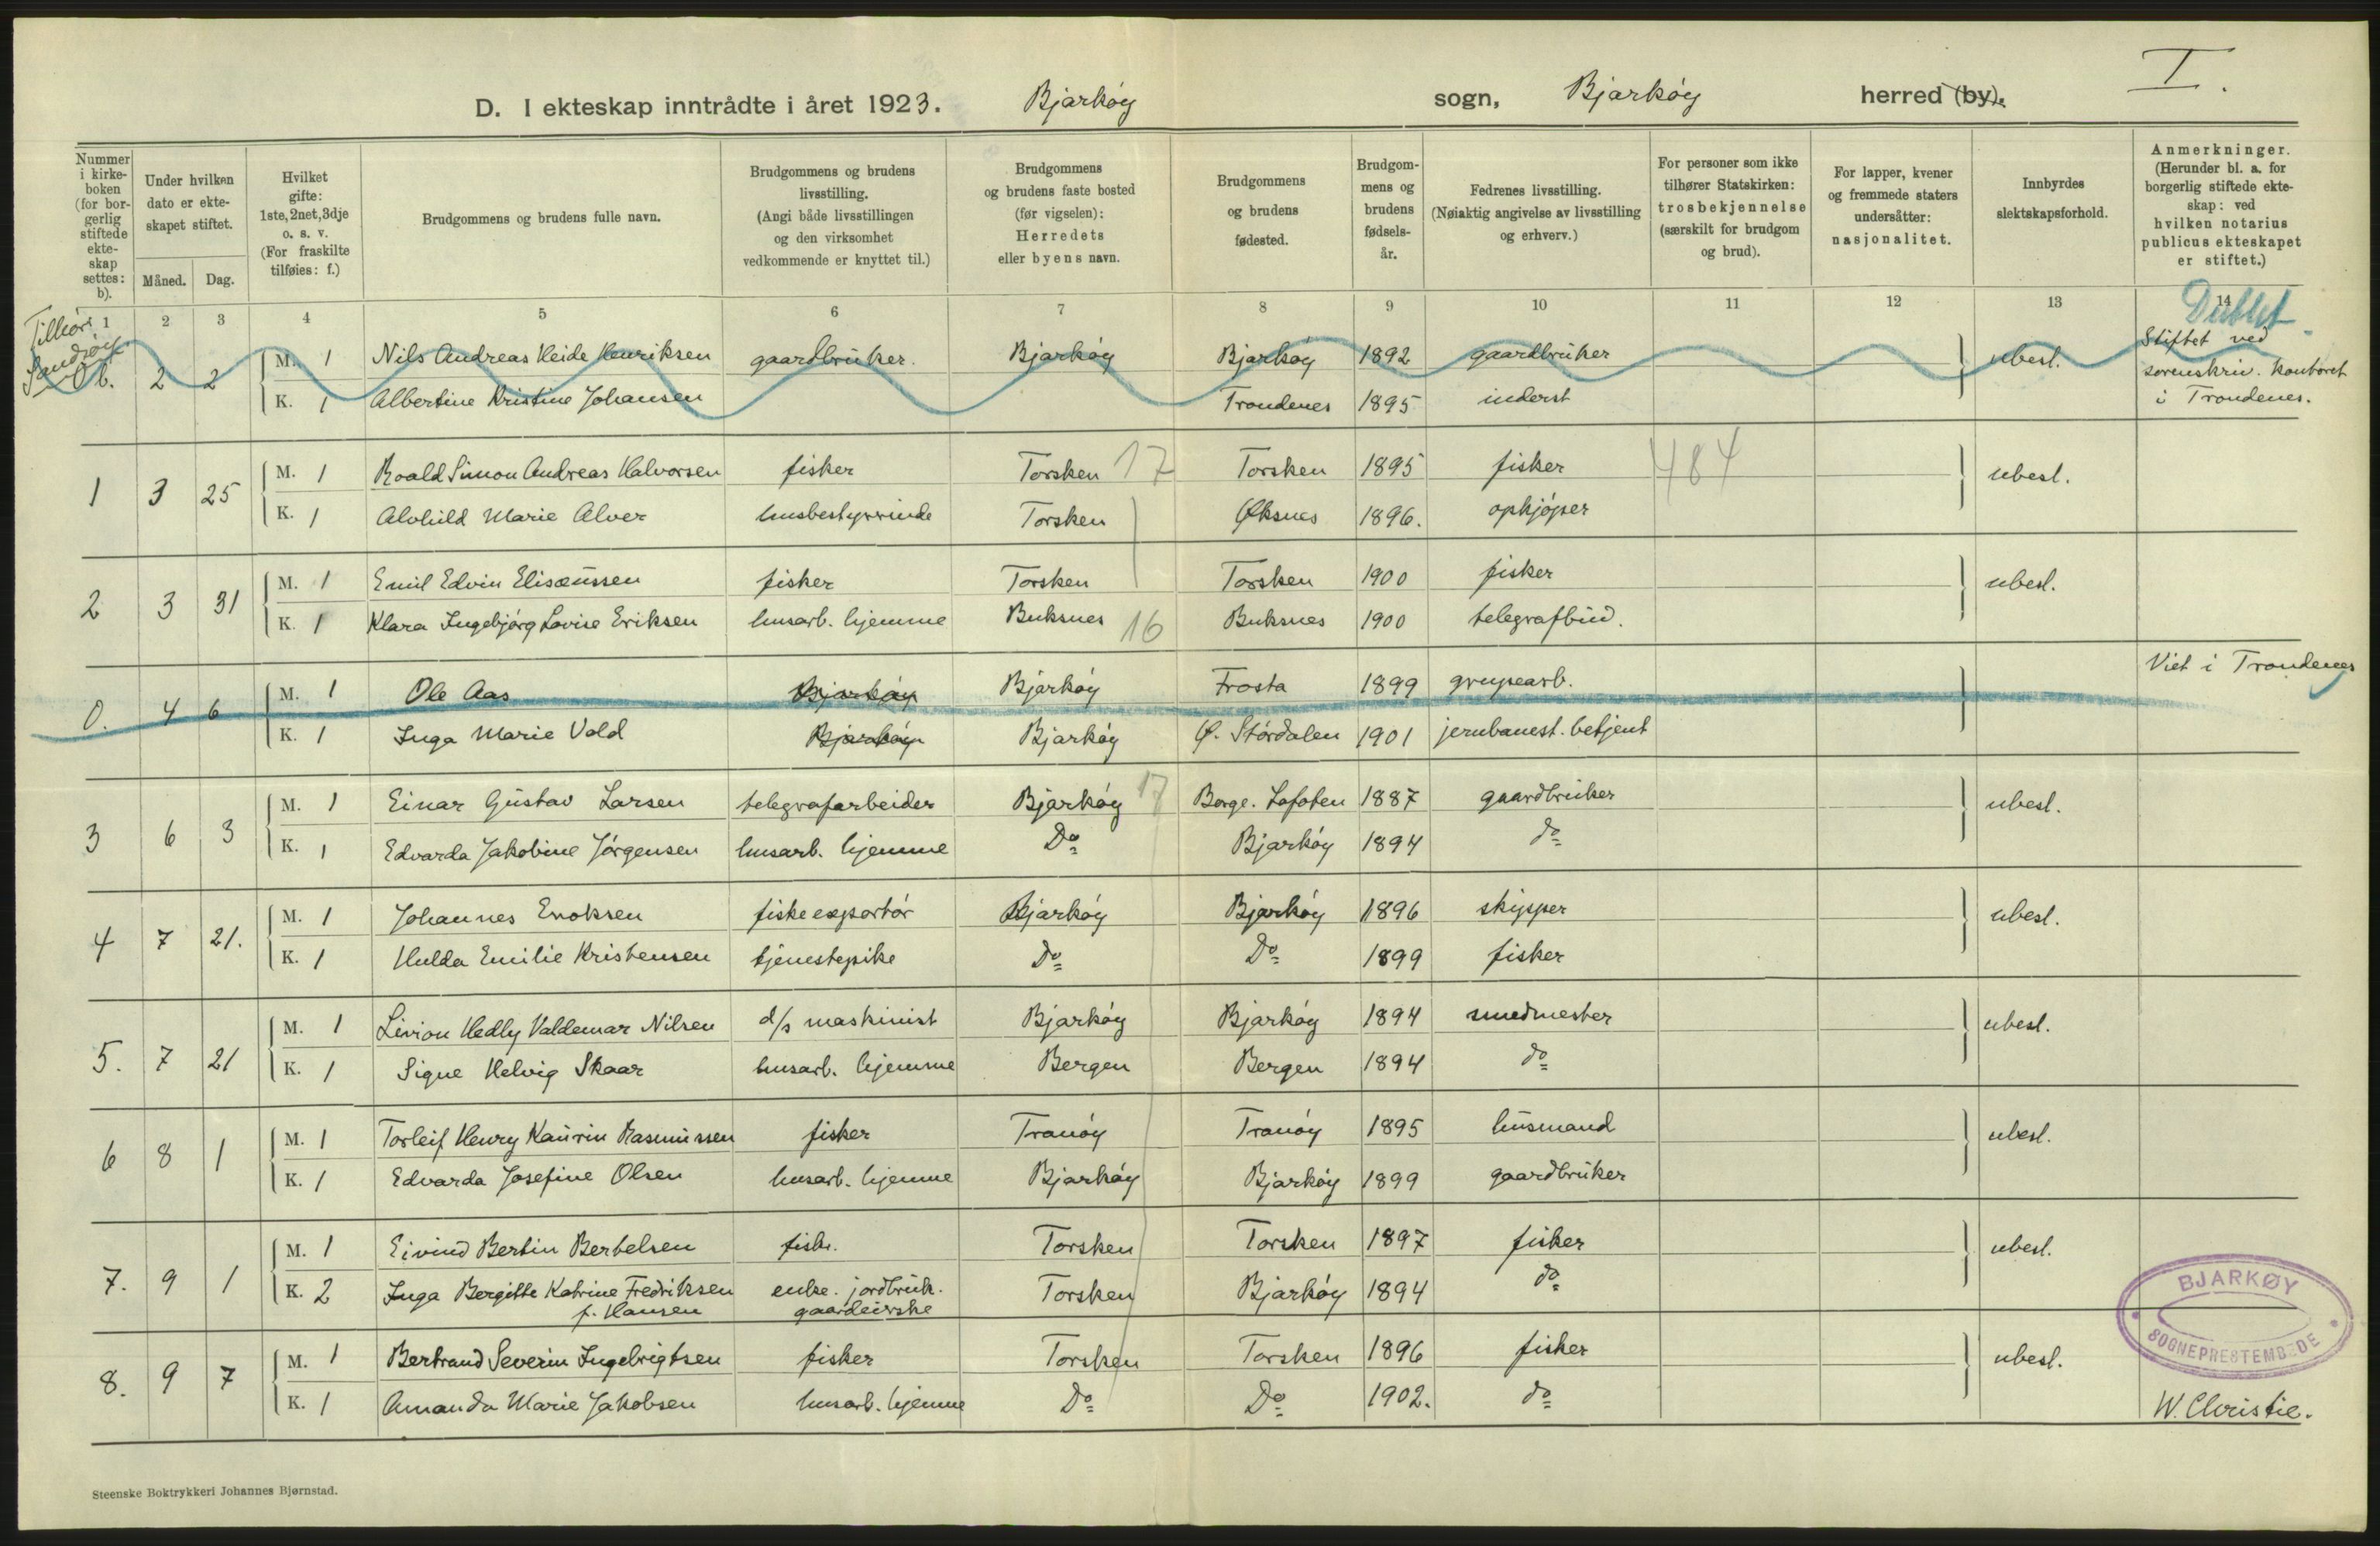 I.
D. I ekteskap inntrådte i året 1923. Bjarkóy sogn, Bjarkóy herred (by).
Nummer i kirke-boken (for bor-gerlig stiftede ekte-skap settes: b).
Under hvilken dato er ekte-skapet stiftet.
Måned. Dag.
Hvilket gifte: 1ste, 2net, 3dje o. s. v. (For fraskilte tilføies: f.)
Brudgommens og brudens fulle navn.
Brudgommens og brudens livsstilling. (Angi både livsstillingen og den virksomhet vedkommende er knyttet til.)
Brudgommens og brudens faste bosted (før vigselen): Herredets eller byens navn.
Brudgommens og brudens fødested.
Brudgom-mens og brudens fødsels-år.
Fedrenes livsstilling. (Nøiaktig angivelse av livsstilling og erhverv.)
For personer som ikke tilhører Statskirken: trosbekjennelse (særskilt for brudgom og brud).
For lapper, kvener og fremmede staters undersåtter: nasjonalitet.
Innbyrdes slektskapsforhold.
Anmerkninger. (Herunder bl. a. for borgerlig stiftede ekte-skap: ved hvilken notarius publicus ekteskapet er stiftet.)
1 2 3 4 5 6 7 8 9 10 11 12 13 14
Tilhör Sandtöy
Dublet.
0b. 2 2 M. 1 Nils Andreas Heide Henriksen gaardbruker. Bjarkóy Bjarkóy 1892 gaardbruker ubesl. Stiftet ved sorenskriv. kontoret i Trondenes.
K. 1 Albertine Kristine Johansen Trondenes 1895 inderst
1 3 25 M. 1 Roald Simon Andreas Halvorsen fisker Torsken 17 Torsken 1895 fisker 484 ubesl.
K. 1 Alvhild Marie Alver husbestyrrinde Torsken Øksnes 1896. opkjóper
2 3 31 M. 1 Emil Edvin Elisæussen fisker Torsken Torsken 1900 fisker ubesl.
K. 1 Klara Ingebjórg Lovise Eriksen husarb. hjemme Buksnes 16 Buksnes 1900 telegrafbud.
0. 4 6 M. 1 Ole Aas Bjarkóy Bjarkóy Frosta 1899 grubearb. Viet i Trondenes
K. 1 Inga Marie Vold Bjarkóy Bjarkóy Ø. Stórdalen 1901 jernbanest. betjent
3 6 3 M. 1 Einar Gustav Larsen telegrafarbeider Bjarkóy 17 Borge. Lofoten 1887 gaardbruker ubesl.
K. 1 Edvarda Jakobine Jórgensen husarb. hjemme Do Bjarkóy 1894 do
4 7 21. M. 1 Johannes Enoksen fiskeexportór Bjarkóy Bjarkóy 1896 skipper ubesl.
K. 1 Hulda Emilie Kristensen tjenestepike Do Do 1899 fisker
5. 7 21 M. 1 Livion Hedly Valdemar Nilsen d/s maskinist Bjarkóy Bjarkóy 1894 smedmester ubesl.
K. 1 Signe Helvig Skaar husarb. hjemme Bergen Bergen 1894 do
6 8 1 M. 1 Torleif Henry Kaurin Rasmussen fisker Tranóy Tranóy 1895 husmand ubesl.
K. 1 Edvarda Josefine Olsen husarb. hjemme Bjarkóy Bjarkóy 1899 gaardbruker
7. 9 1 M. 1 Eivind Bertin Bertelsen fisk. Torsken Torsken 1897 fisker ubesl.
K. 2 Inga Bergitte Katrine Fredriksen f. Hansen enke. jordbruk. gaardeierske Torsken Bjarkóy 1894 do
8. 9 7 M. 1 Bertrand Severin Ingebrigtsen fisker Torsken Torsken 1896 fisker ubesl.
K. 1 Amanda Marie Jakobsen husarb. hjemme Do Do 1902. do
BJARKØY SOGNEPRESTEMBEDE
W. Christie.
Steenske Boktrykkeri Johannes Bjørnstad.